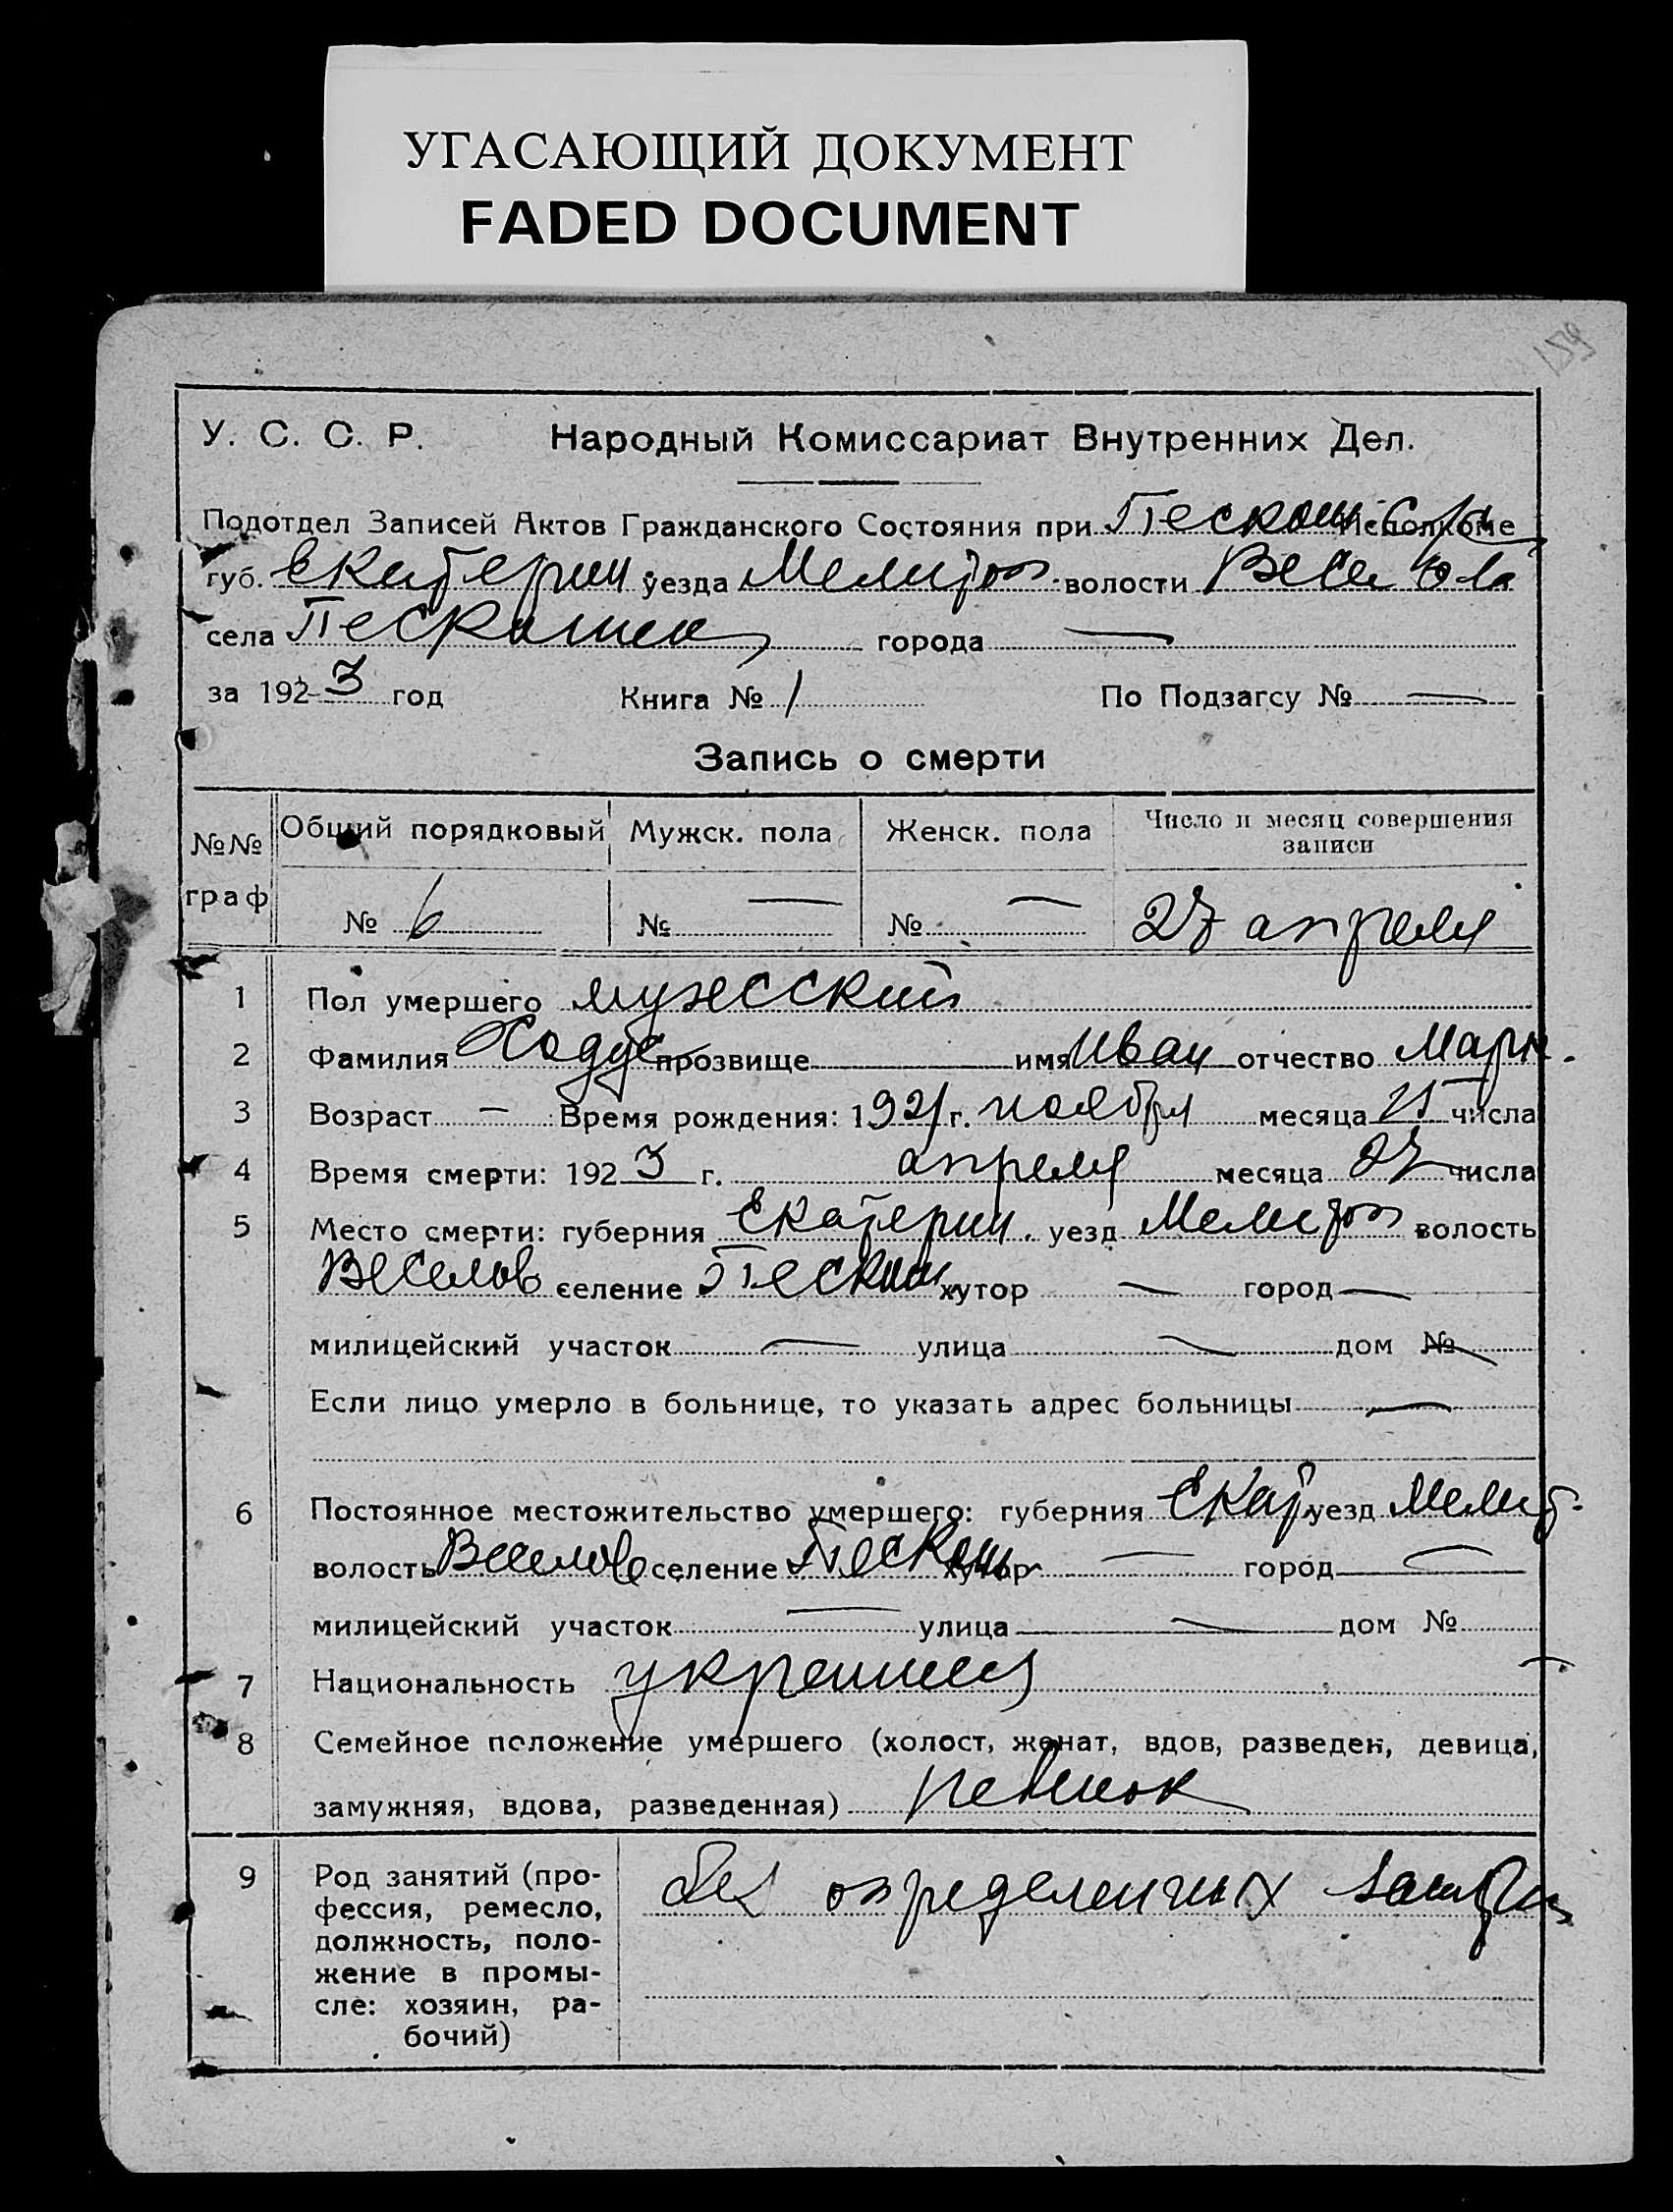 УГАСАЮЩИЙ ДОКУМЕНТ
FADED DOCUMENT
159
У. С. С. Р. Народный Комиссариат Внутренних Дел.
Подотдел Записей Актов Гражданского Состояния при Исполкоме
губ. Екатерин уезда Мелитоп волости
села города —
за 1923 год Книга № 1 По Подзагсу № —
Запись о смерти
№№ граф Общий порядковый Мужск. пола Женск. пола Число и месяц совершения записи
№ 6 № — № — 27 апреля
1 Пол умершего мужесский
2 Фамилия Ходус прозвище имя Иван отчество Марк.
3 Возраст — Время рождения: 1921 г. ноября месяца 25 числа
4 Время смерти: 1923 г. апреля месяца 27 числа
5 Место смерти: губерния Екатерин. уезд Мелитоп волость
Веселов селение Пескош хутор — город —
милицейский участок — улица — дом №
Если лицо умерло в больнице, то указать адрес больницы —
6 Постоянное местожительство умершего: губерния Екат. уезд Мелит.
волость Веселов селение Пескош хутор — город —
милицейский участок — улица — дом № —
7 Национальность
8 Семейное положение умершего (холост, женат, вдов, разведен, девица,
замужняя, вдова, разведенная) ребенок
9 Род занятий (про- без определенных занятий
фессия, ремесло,
должность, поло-
жение в промы-
сле: хозяин, ра-
бочий)